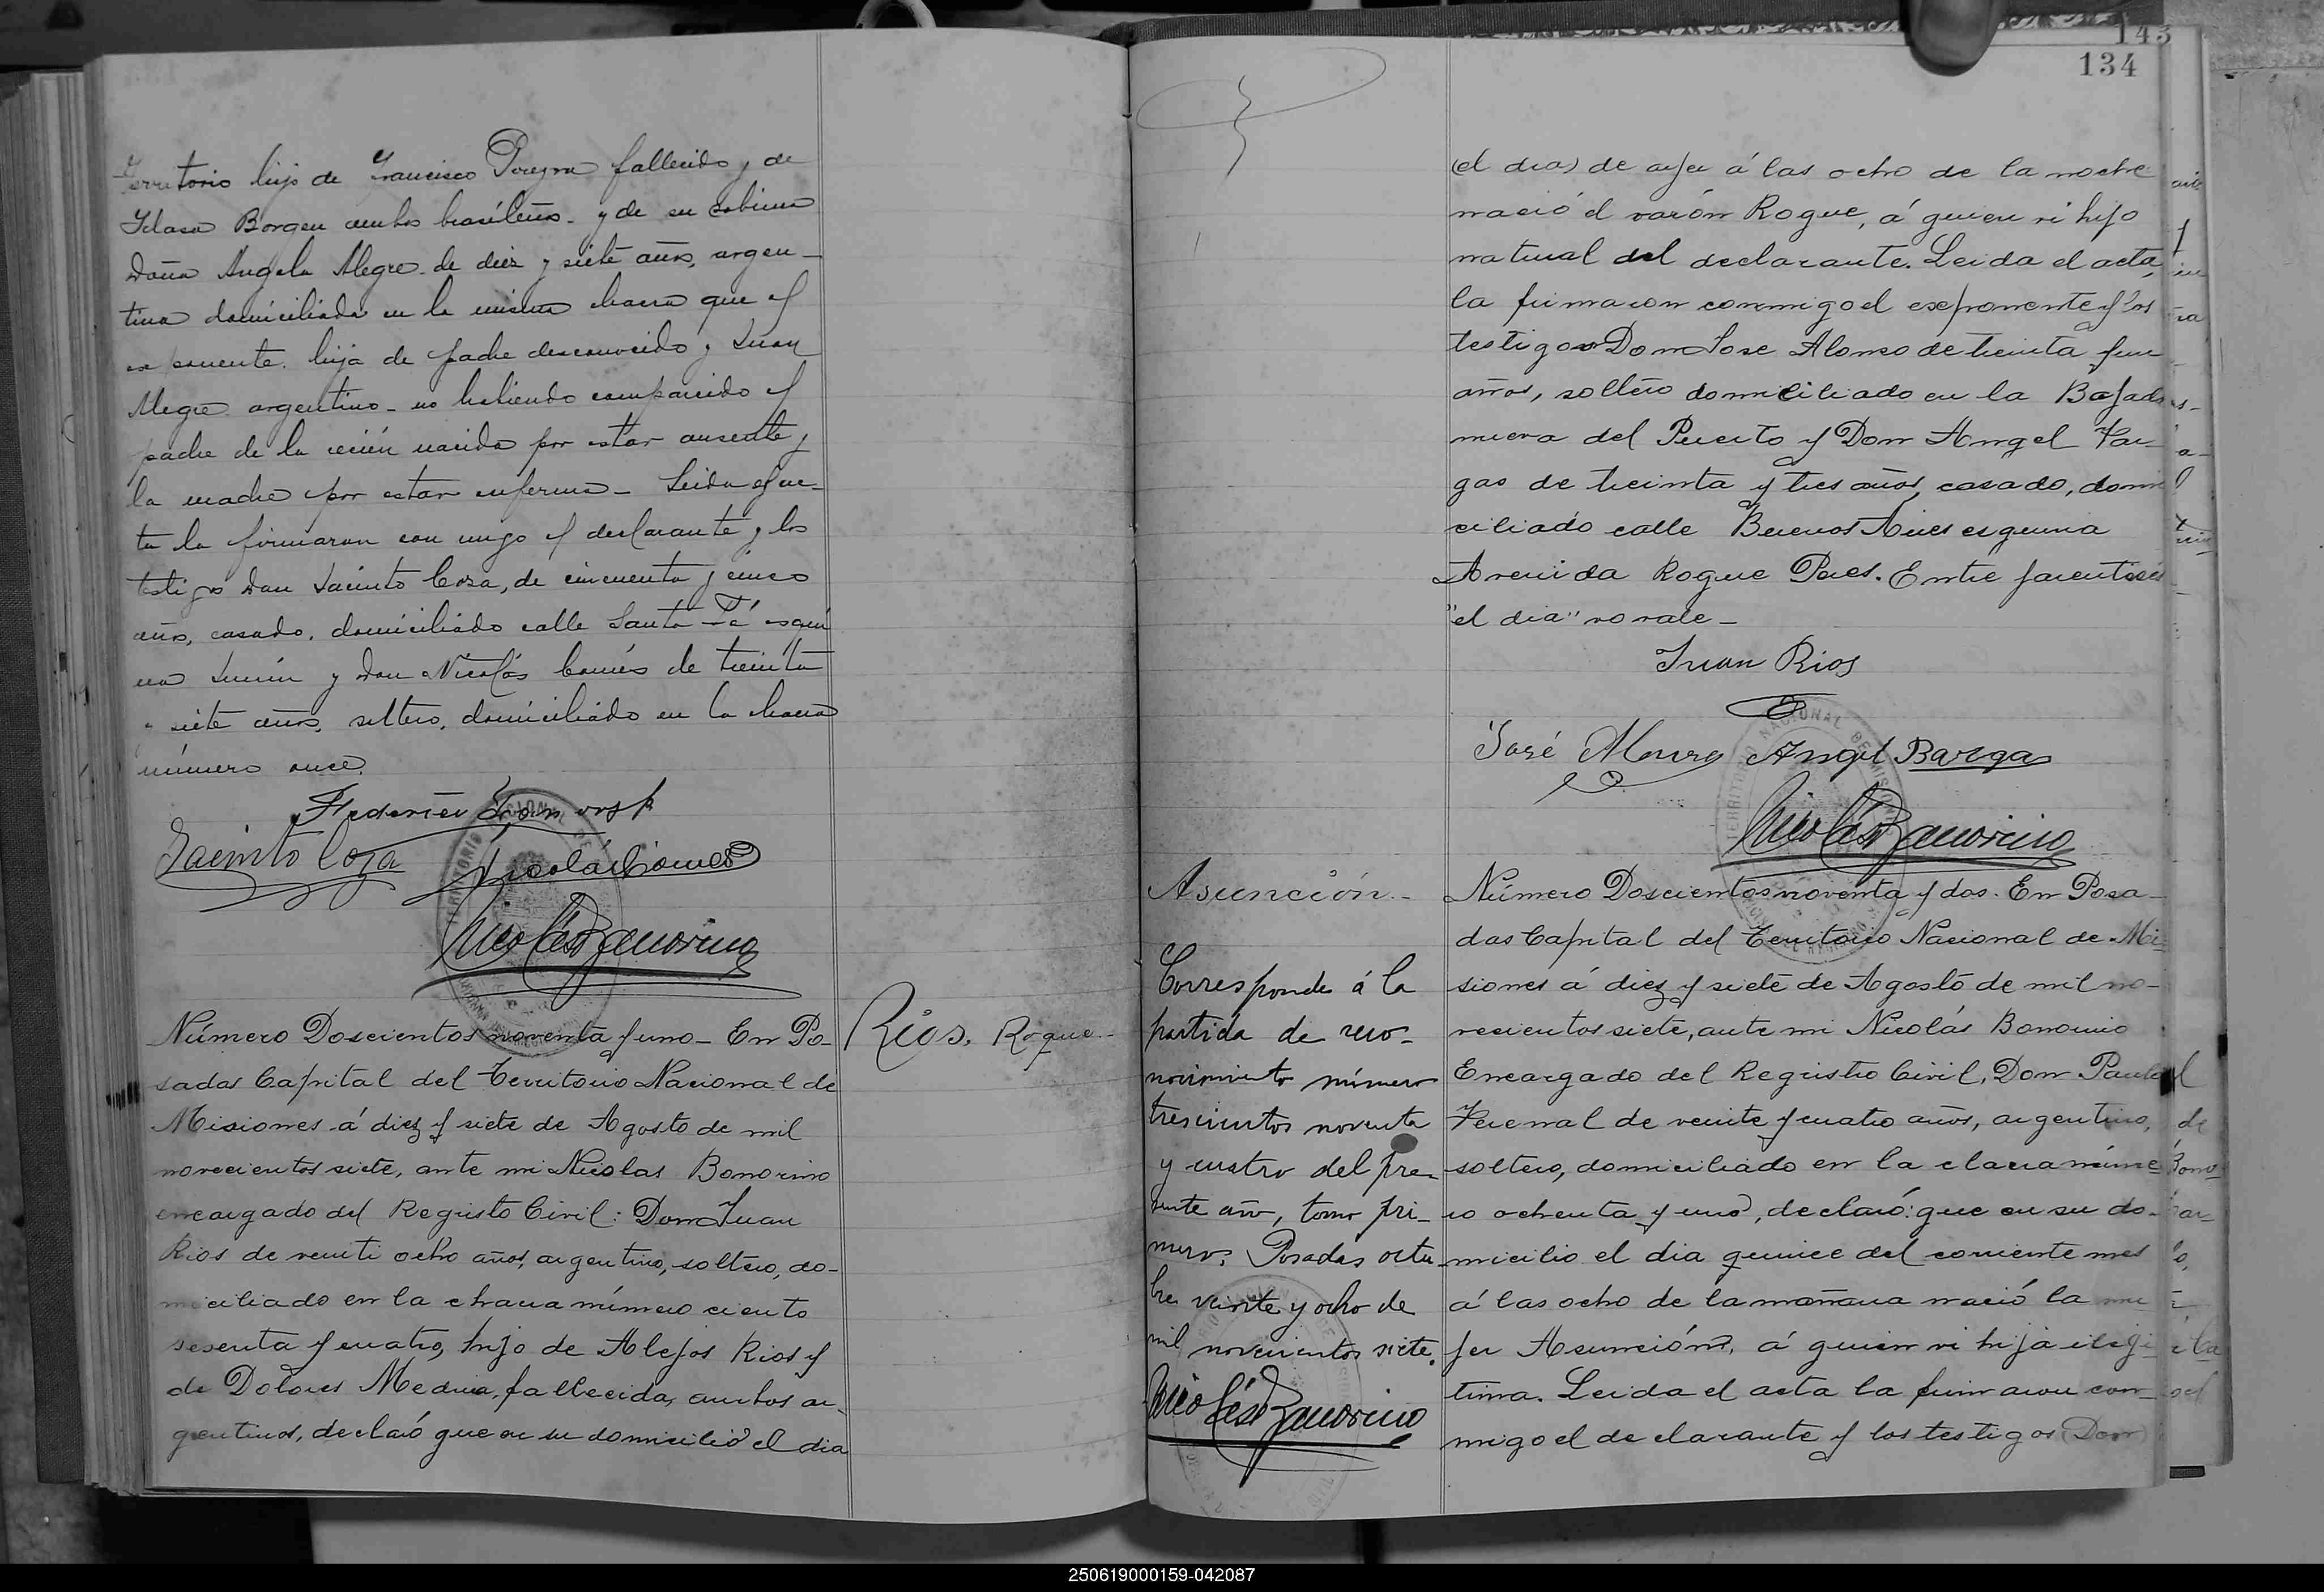 Territorio hijo de Francisco Pereyra fallecido y de
Borgen ambos brasileños - y de su sobrina
Doña Angela Alegre de diez y siete años, argen-
tina domiciliada en la misma chacra que el
exponente. hija de padre desconocido y Juan
Alegre argentino - no habiendo comparecido el
padre de la recién nacida por estar ausente y
la madre por estar enferma - Leida el ac-
ta la firmaron con migo el declarante y los
testigos Don Jacinto Coza, de cincuenta y cinco
años, casado, domiciliado calle Santa Fé esqui
na Junin y Don Nicolás Gomés de treinta
y siete años, soltero, domiciliado en la chacra
número once.
Federico
Jacinto Coza Nicolás Gomés
Nicolás Bonorino
Número Doscientos noventa y uno - En Po-
sadas Capital del Territorio Nacional de
Misiones á diez y siete de Agosto de mil
novecientos siete, ante mi Nicolas Bonorino
encargado del Registo Civil: Don Juan
Rios de veinti ocho años, argentino, soltero, do-
miciliado en la chacra número ciento
sesenta y cuatro, hijo de Alejos Rios y
de Dolores Medina, fallecida, ambos ar-
gentinos, declaró que en su domicilio el dia
Rios, Roque -
143
134
(el dia) de ayer á las ocho de la noche
nació el varón Roque, á quien vi hijo
natural del declarante. Leida el acta,
la firmaron conmigo el exponente y los
testigos Don Jose Alonso de treinta y un
años, soltero domiciliado en la Bajada
nueva del Puerto y Don Angel Var-
gas de treinta y tres años, casado, domi
ciliado calle Buenos Aires esquina
Avenida Roque Perez. Entre parentesis
"el dia" no vale -
Juan Rios
José Alonso Angel Bargas
Nicolás Bonorino
Asunción -
Corresponde á la
partida de reco-
nocimiento número
trescientos noventa
y cuatro del pre-
sente año, tomo pri-
mero. Posadas octu-
bre veinte y ocho de
mil novecientos siete.
Nicolás Bonorino
Número Doscientos noventa y dos. En Posa-
das Capital del Territorio Nacional de Mi-
siones á diez y siete de Agosto de mil no-
vecientos siete, ante mi Nicolás Bonorino
Encargado del Registro Civil, Don Paulo
Vernal de veinte y cuatro años, argentino,
soltero, domiciliado en la chacra núme
ro ochenta y uno, declaró: que en su do-
micilio el dia quince del corriente mes
á las ocho de la mañana nació la mu
jer Asunción, á quien vi hija ilegi-
tima. Leida el acta la firmaron con-
migo el declarante y los testigos (Don)
250619000159-042087